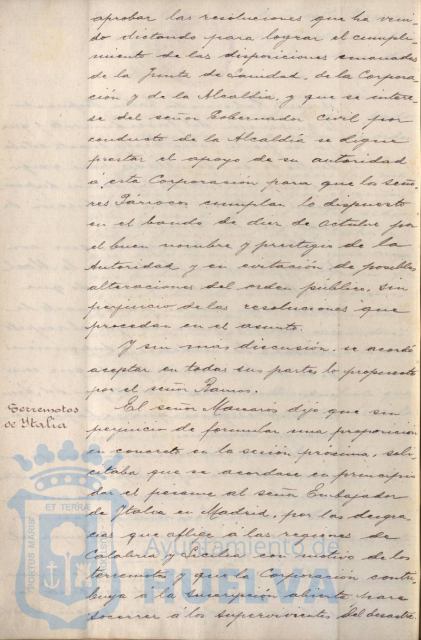 aprobar las resoluciones que ha veni-
do dictando para lograr el cumpli-
miento de las disposiciones emanadas
de la Junta de Sanidad, de la Corpora-
ción y de la Alcaldia, y que se intere-
se del señor Gobernador civil por
conducto de la Alcaldía se digne
prestar el apoyo de su autoridad
á esta Corporación para que los seño-
res Párrocos cumplan lo dispuesto
en el bando de diez de Octubre por
el buen nombre y prestigio de la
Autoridad y en evitación de posibles
alteraciones del orden público, sin
perjuicio de las resoluciones que
procedan en el asunto.
Y sin más discusión, se acordó
aceptar en todas sus partes lo propuesto
por el señor Ramos.
Terremotos
de Italia
El señor Macario dijo que sin
perjuicio de formular una proposición
en concreto en la sesión proxima, soli-
citaba que se acordase en principio
dar el pesame al señor Embajador
de Italia en Madrid, por las desgra-
cias que aflige á las regiones de
Calabria y Sicilia con motivo de los
terremotos y que la Corporación contri-
buya á la suscripción abierta para
socorrer á los supervivientes del desastre.
PORTUS MARIS
ET TERRÆ
Ayuntamiento de
HUELVA